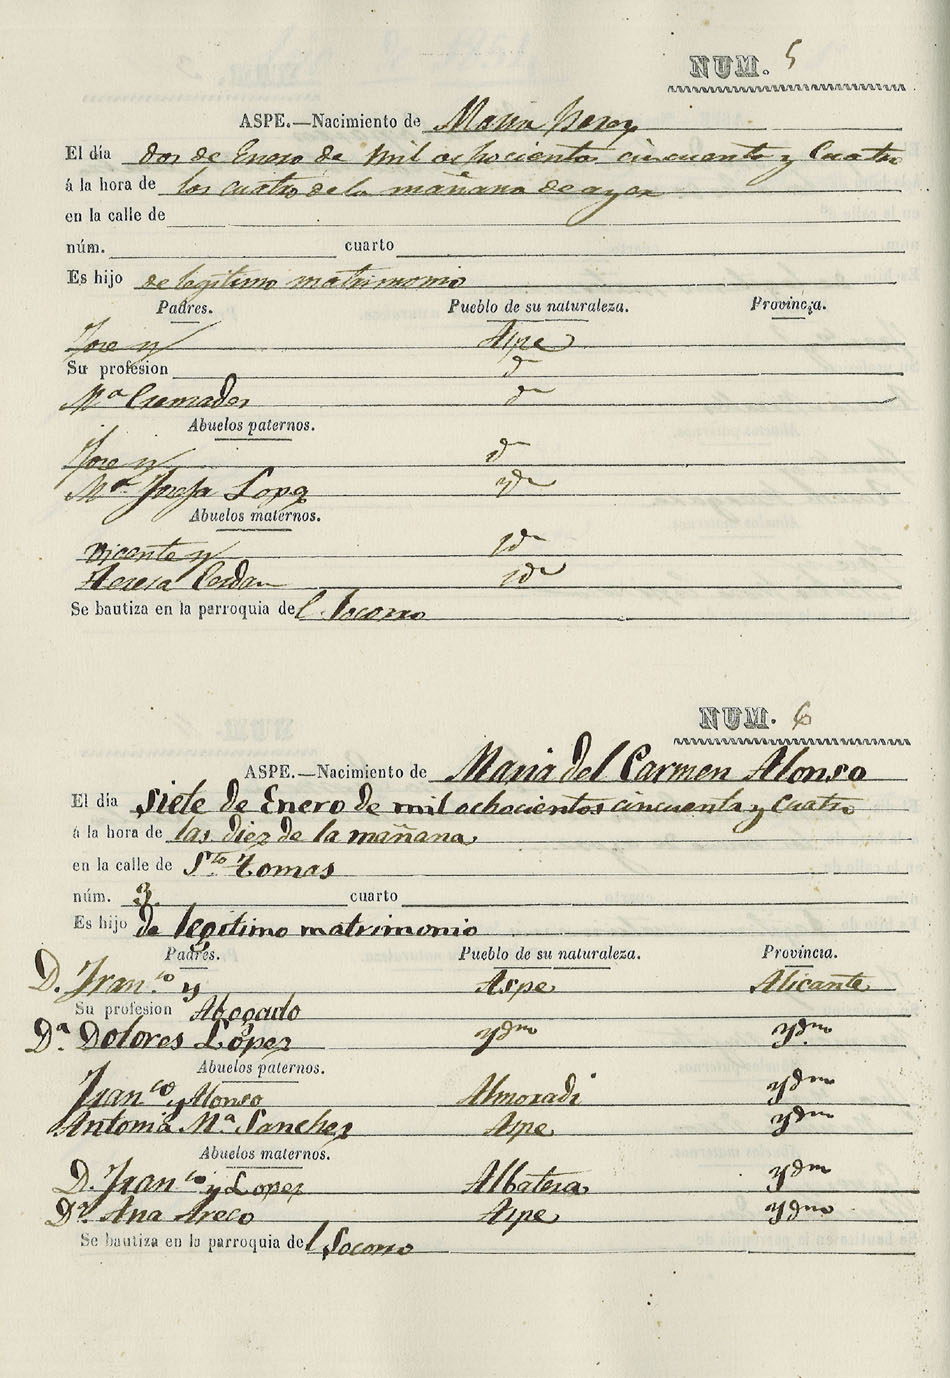 NUM. 5
ASPE.—Nacimiento de Maria Perez
El día dos de Enero de mil ochocientos cincuenta y Cuatro
á la hora de las cuatro de la mañana de ayer
en la calle de
núm. cuarto
Es hijo de legitimo matrimonio
Padres. Pueblo de su naturaleza. Provincia.
Jose y Aspe
Su profesion id
Mª Cremades id
Abuelos paternos.
Jose y id
Mª Josefa Lopez yd
Abuelos maternos.
Vicente y yd
Teresa Cerdan yd
Se bautiza en la parroquia del Socorro
NUM. 6
ASPE.—Nacimiento de Maria del Carmen Alonso
El día siete de Enero de mil ochocientos cincuenta y Cuatro
á la hora de las diez de la mañana
en la calle de Sto Tomas
núm. 3. cuarto
Es hijo de legitimo matrimonio
Padres. Pueblo de su naturaleza. Provincia.
D. Franco y Aspe Alicante
Su profesion Abogado
Dª Dolores López ydm ydm
Abuelos paternos.
Franco y Alonso Almoradi ydm
Antonia Mª Sanchez Aspe ydm
Abuelos maternos.
D. Franco y Lopez Albatera ydm
Dª Ana Aspe ydmo
Se bautiza en la parroquia del Socorro